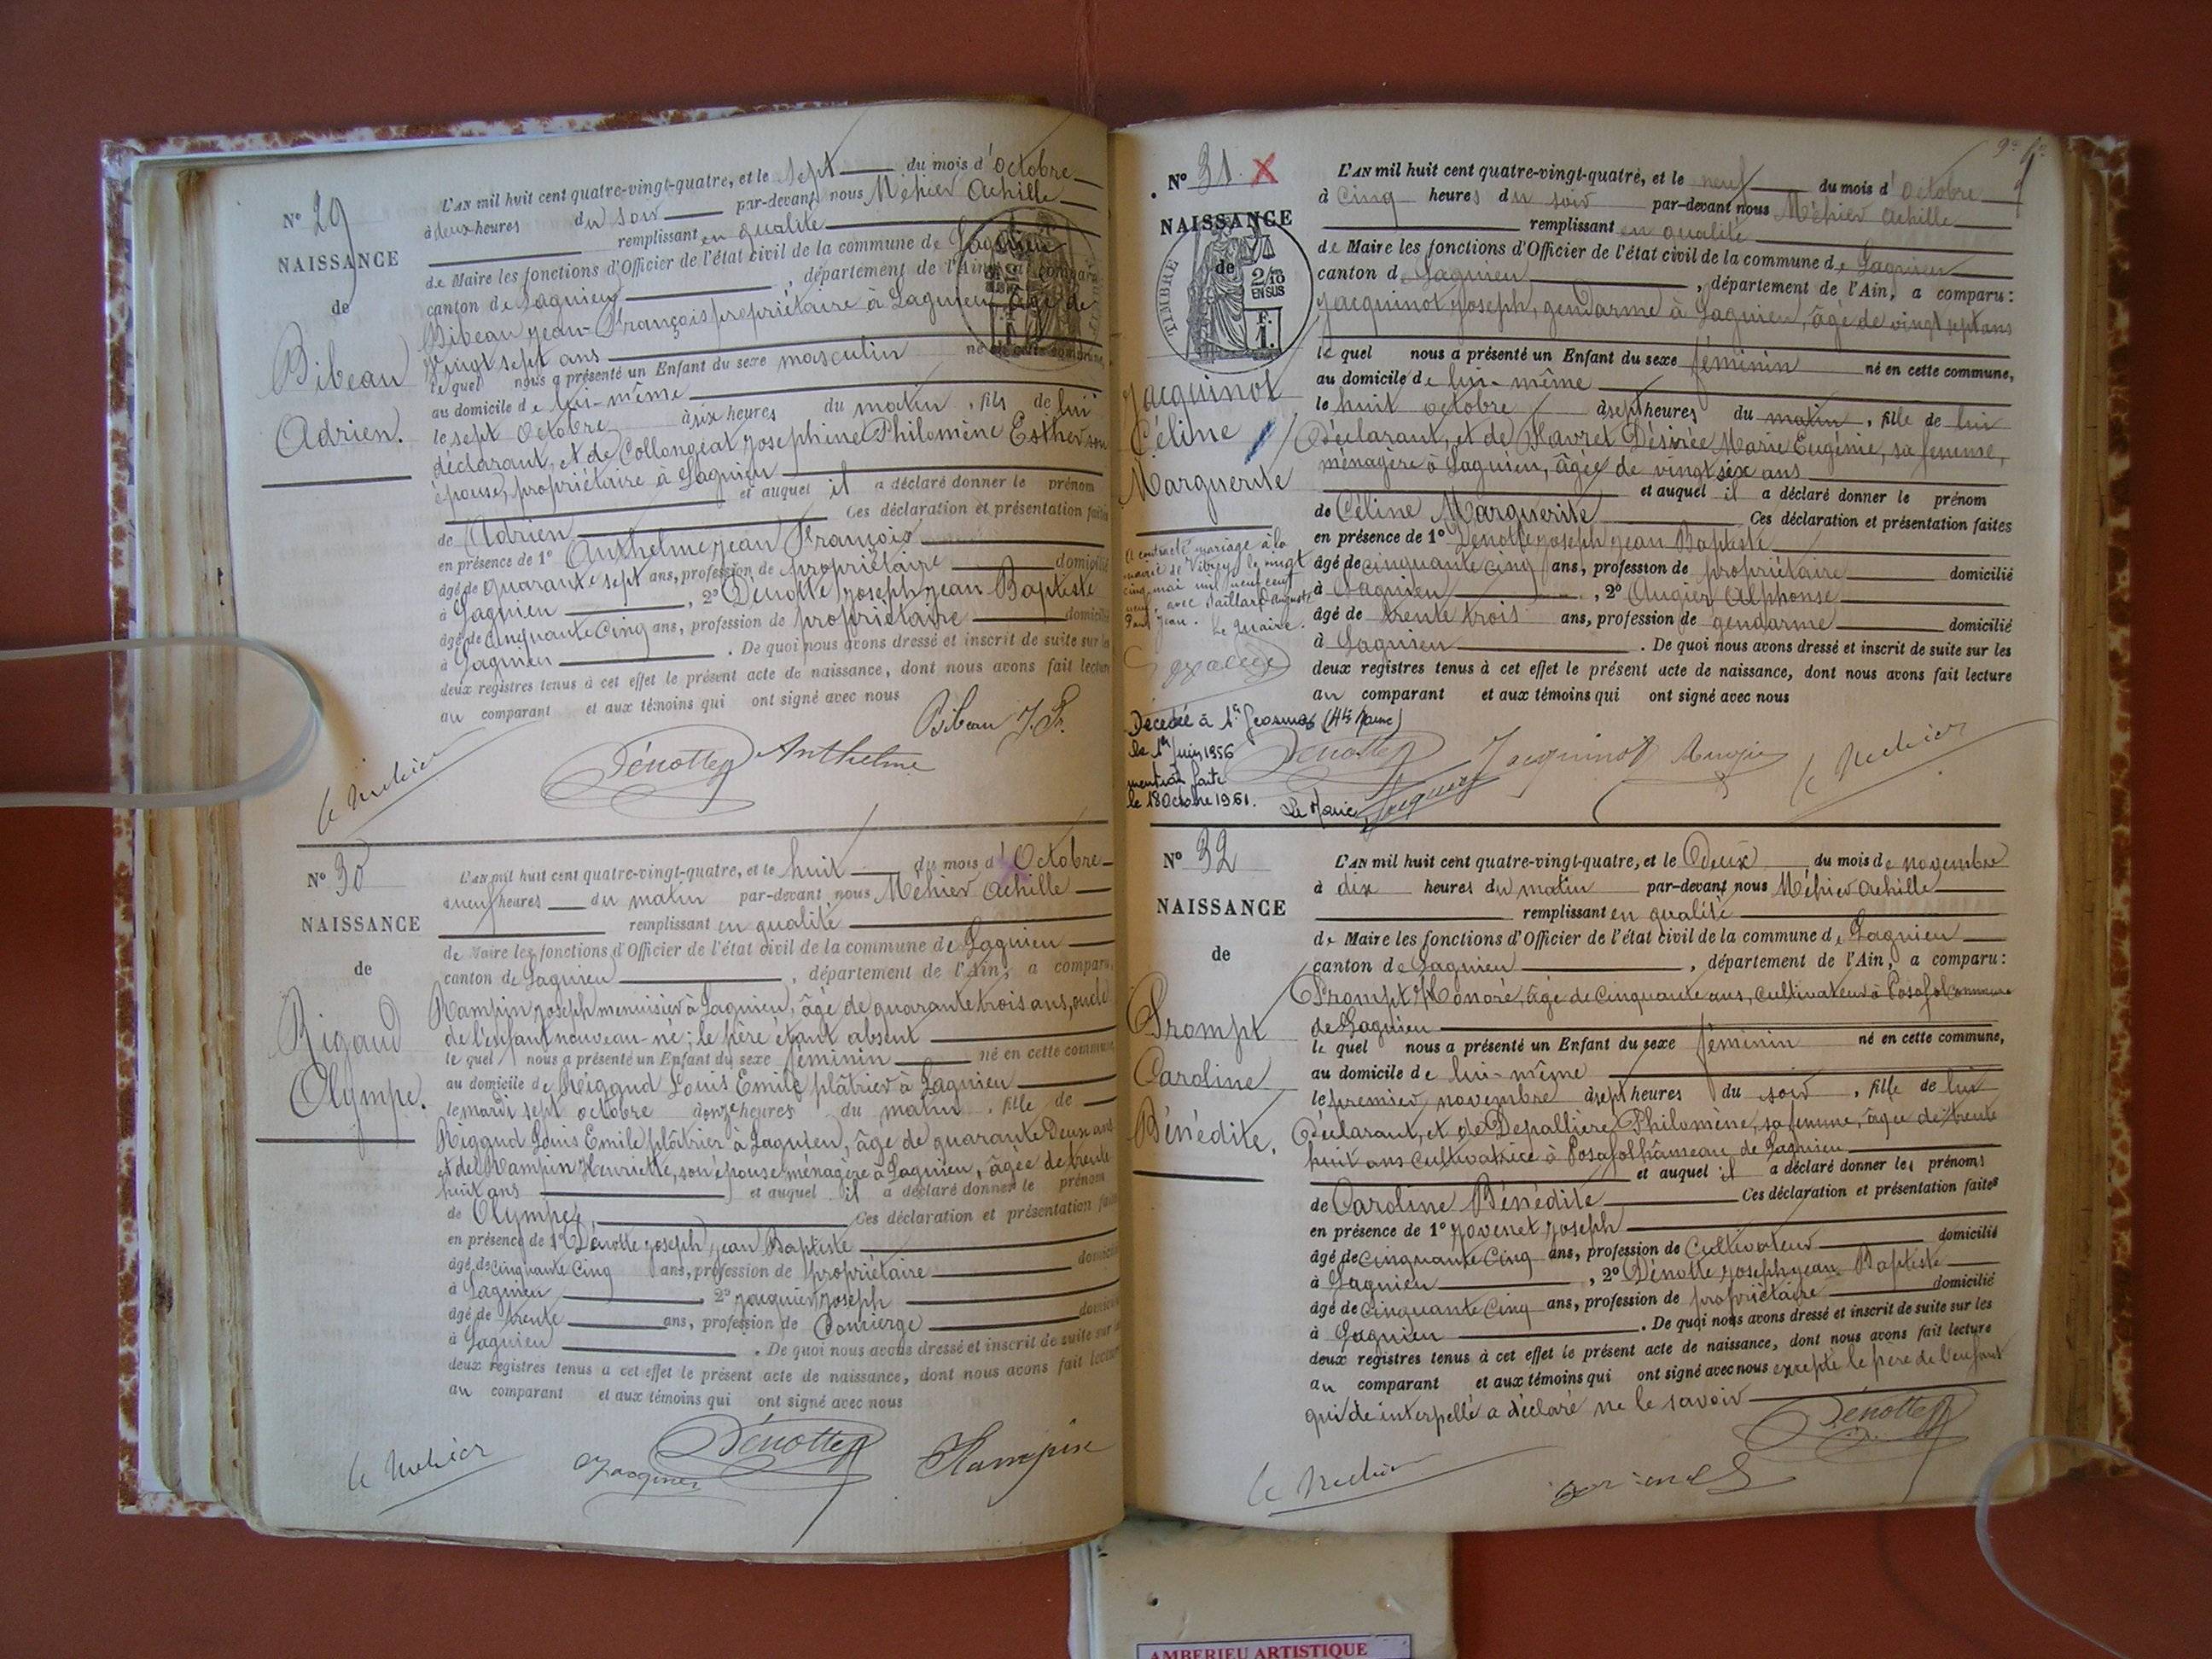 N° 29
NAISSANCE
de
Bibeau
Adrien.
L'AN mil huit cent quatre-vingt-quatre, et le sept du mois d'octobre
à deux heures du soir par-devant nous Méhier Achille
remplissant en qualité
de Maire les fonctions d'Officier de l'état civil de la commune de Lagnieu
canton de Lagnieu, département de l'Ain, a comparu
Bibeau Jean-François propriétaire à Lagnieu, âgé de
vingt sept ans
le quel nous a présenté un Enfant du sexe masculin né en cette commune,
au domicile de lui-même
le sept octobre à six heures du matin, fils de lui
déclarant, et de Collongeat Josephine Philomène Esther son
épouse, propriétaire à Lagnieu
et auquel il a déclaré donner le prénom
de Adrien Ces déclaration et présentation faites
en présence de 1° Anthelme Jean François
âgé de quarante sept ans, profession de propriétaire domicilié
à Lagnieu, 2° Dénotte Joseph Jean Baptiste
âgé de cinquante cinq ans, profession de propriétaire domicilié
à Lagnieu. De quoi nous avons dressé et inscrit de suite sur les
deux registres tenus à cet effet le présent acte de naissance, dont nous avons fait lecture
au comparant et aux témoins qui ont signé avec nous
Bibeau J. F.
Dénotte Anthelme
Le Méhier
N° 30
NAISSANCE
de
Rigaud
Olympe.
L'AN mil huit cent quatre-vingt-quatre, et le huit du mois d'Octobre
à neuf heures du matin par-devant nous Méhier Achille
remplissant en qualité
de Maire les fonctions d'Officier de l'état civil de la commune de Lagnieu
canton de Lagnieu, département de l'Ain, a comparu
Rampin Joseph menuisier à Lagnieu, âgé de quarante trois ans, oncle
de l'enfant nouveau-né; le père étant absent
le quel nous a présenté un Enfant du sexe féminin né en cette commune
au domicile de Rigaud Louis Emile plâtrier à Lagnieu
le mardi sept octobre à onze heures du matin, fille de
Rigaud Louis Emile plâtrier à Lagnieu, âgé de quarante deux ans
et de Rampin Henriette, son épouse ménagère à Lagnieu, âgée de trente
huit ans et auquel il a déclaré donner le prénom
de Olympe, Ces déclaration et présentation faites
en présence de 1° Dénotte Joseph Jean Baptiste
âgé de cinquante cinq ans, profession de propriétaire domicilié
à Lagnieu, 2° Jacquier Joseph
âgé de trente ans, profession de Concierge domicilié
à Lagnieu. De quoi nous avons dressé et inscrit de suite sur les
deux registres tenus à cet effet le présent acte de naissance, dont nous avons fait lecture
au comparant et aux témoins qui ont signé avec nous
Le Méhier Jacquier Dénotte Rampin
N° 31 X
NAISSANCE
de
TIMBRE
2/10
EN SUS
F.
1.
Jacquinot
Céline
Marguerite
A contracté mariage à la
mairie de le vingt
cinq mai mil neuf cent
neuf, avec Paillard Auguste
Paul Jean. Le Maire.
Décédée à St Geosmes (Hte Marne)
le 1er Juin 1956
mention faite
le 18 Octobre 1961. Le Maire
L'AN mil huit cent quatre-vingt-quatre, et le neuf du mois d'octobre
à cinq heures du soir par-devant nous Méhier Achille
remplissant en qualité
de Maire les fonctions d'Officier de l'état civil de la commune de Lagnieu
canton de Lagnieu, département de l'Ain, a comparu:
Jacquinot Joseph, gendarme à Lagnieu, âgé de vingt sept ans
le quel nous a présenté un Enfant du sexe féminin né en cette commune,
au domicile de lui-même
le huit octobre à sept heures du matin, fille de lui
déclarant, et de Havret Désirée Marie Eugénie, sa femme,
ménagère à Lagnieu, âgée de vingt six ans
et auquel il a déclaré donner le prénom
de Céline Marguerite Ces déclaration et présentation faites
en présence de 1° Dénotte Joseph Jean Baptiste
âgé de cinquante cinq ans, profession de propriétaire domicilié
à Lagnieu, 2° Augier Alphonse
âgé de trente trois ans, profession de gendarme domicilié
à Lagnieu. De quoi nous avons dressé et inscrit de suite sur les
deux registres tenus à cet effet le présent acte de naissance, dont nous avons fait lecture
au comparant et aux témoins qui ont signé avec nous
Dénotte Jacquinot Augier Le Méhier
N° 32
NAISSANCE
de
Prompt
Caroline
Bénédite.
L'AN mil huit cent quatre-vingt-quatre, et le Deux du mois de novembre
à dix heures du matin par-devant nous Méhier Achille
remplissant en qualité
de Maire les fonctions d'Officier de l'état civil de la commune de Lagnieu
canton de Lagnieu, département de l'Ain, a comparu:
Prompt Honoré, âgé de cinquante ans, cultivateur à Posafol commune
de Lagnieu
le quel nous a présenté un Enfant du sexe féminin né en cette commune,
au domicile de lui-même
le premier novembre à sept heures du soir, fille de lui
Déclarant, et de Depallière Philomène, sa femme, âgée de trente
huit ans cultivatrice à Posafol hâmeau de Lagnieu
et auquel il a déclaré donner les prénoms
de Caroline Bénédite Ces déclaration et présentation faites
en présence de 1° Jovenet Joseph
âgé de cinquante cinq ans, profession de Cultivateur domicilié
à Lagnieu, 2° Dénotte Joseph Jean Baptiste
âgé de cinquante cinq ans, profession de propriétaire domicilié
à Lagnieu. De quoi nous avons dressé et inscrit de suite sur les
deux registres tenus à cet effet le présent acte de naissance, dont nous avons fait lecture
au comparant et aux témoins qui ont signé avec nous excepté le père de l'enfant
qui de interpellé a déclaré ne le savoir
Dénotte
Le Méhier
AMBERIEU ARTISTIQUE